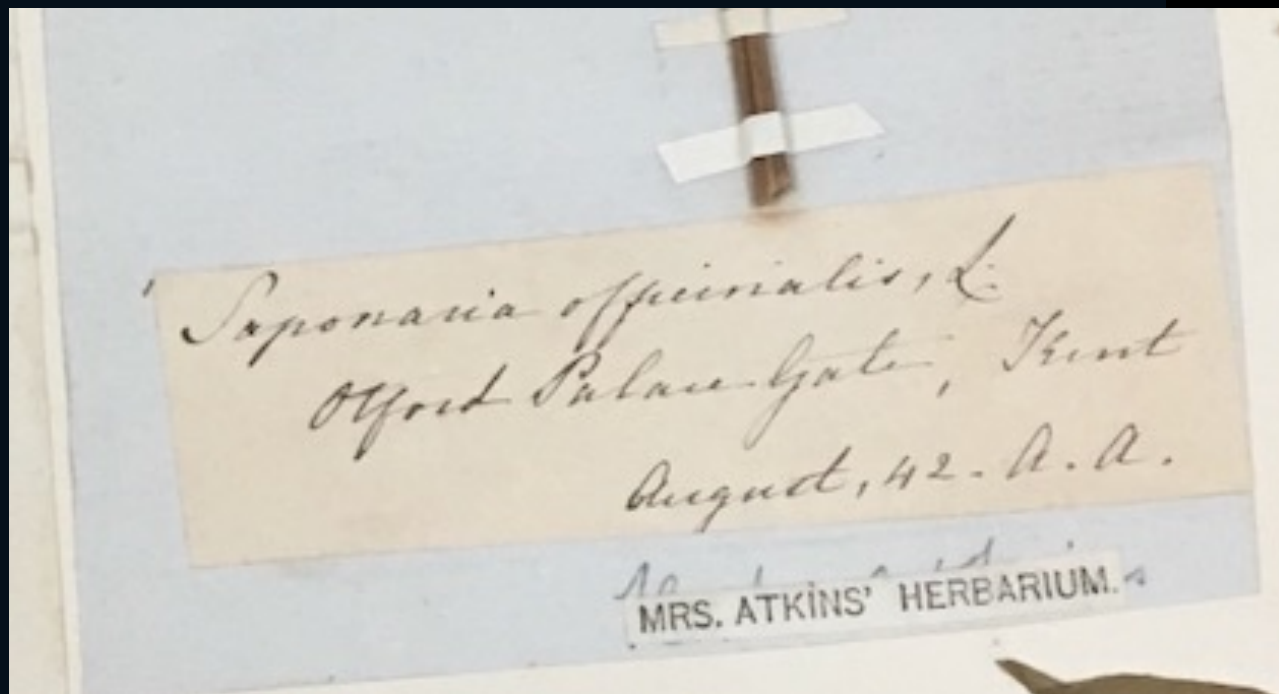 Saponaria officinalis, L.
Otford Palace Gate, Kent
August, 42. A. A.
MRS. ATKINS' HERBARIUM.